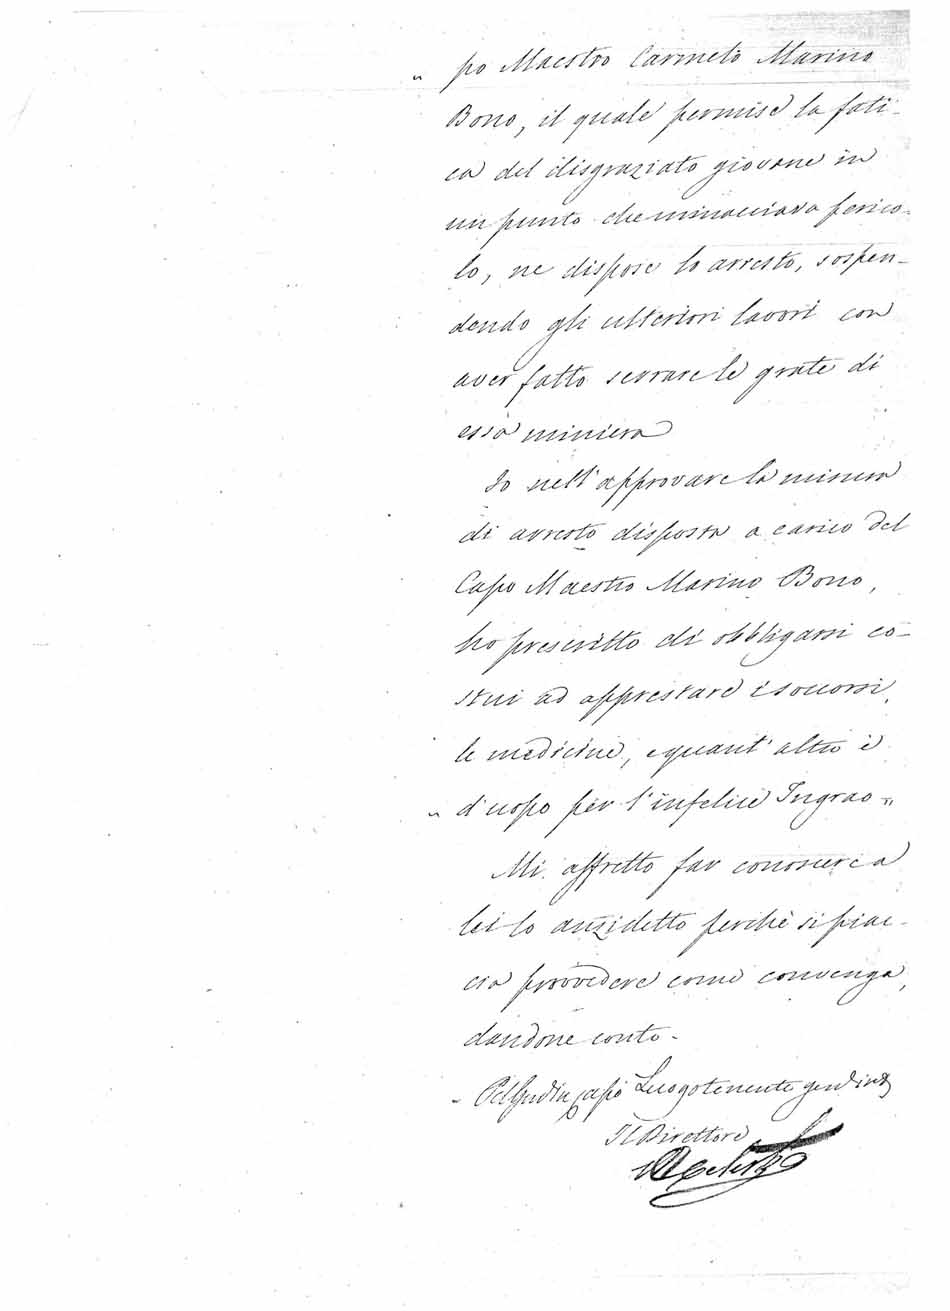 po Maestro Carmelo Marino
Bono, il quale permise la fati-
ca del disgraziato giovane in
un punto che minacciava perico-
lo, ne dispose lo arresto, sospen-
dendo gli ulteriori lavori con
aver fatto serrare le grate di
essa miniera
Io nell'approvare la misura
di arresto disposta a carico del
Capo Maestro Marino Bono,
ho prescritto di obbligarsi co-
stui ad apprestare i soccorsi,
le medicine, e quant'altro è
d'uopo per l'infelice Ingrao-"
Mi affretto far conoscere a
lei lo anzidetto perchè si piac-
cia provvedere come convenga,
dandone conto-
Luogotenente
Il Direttore